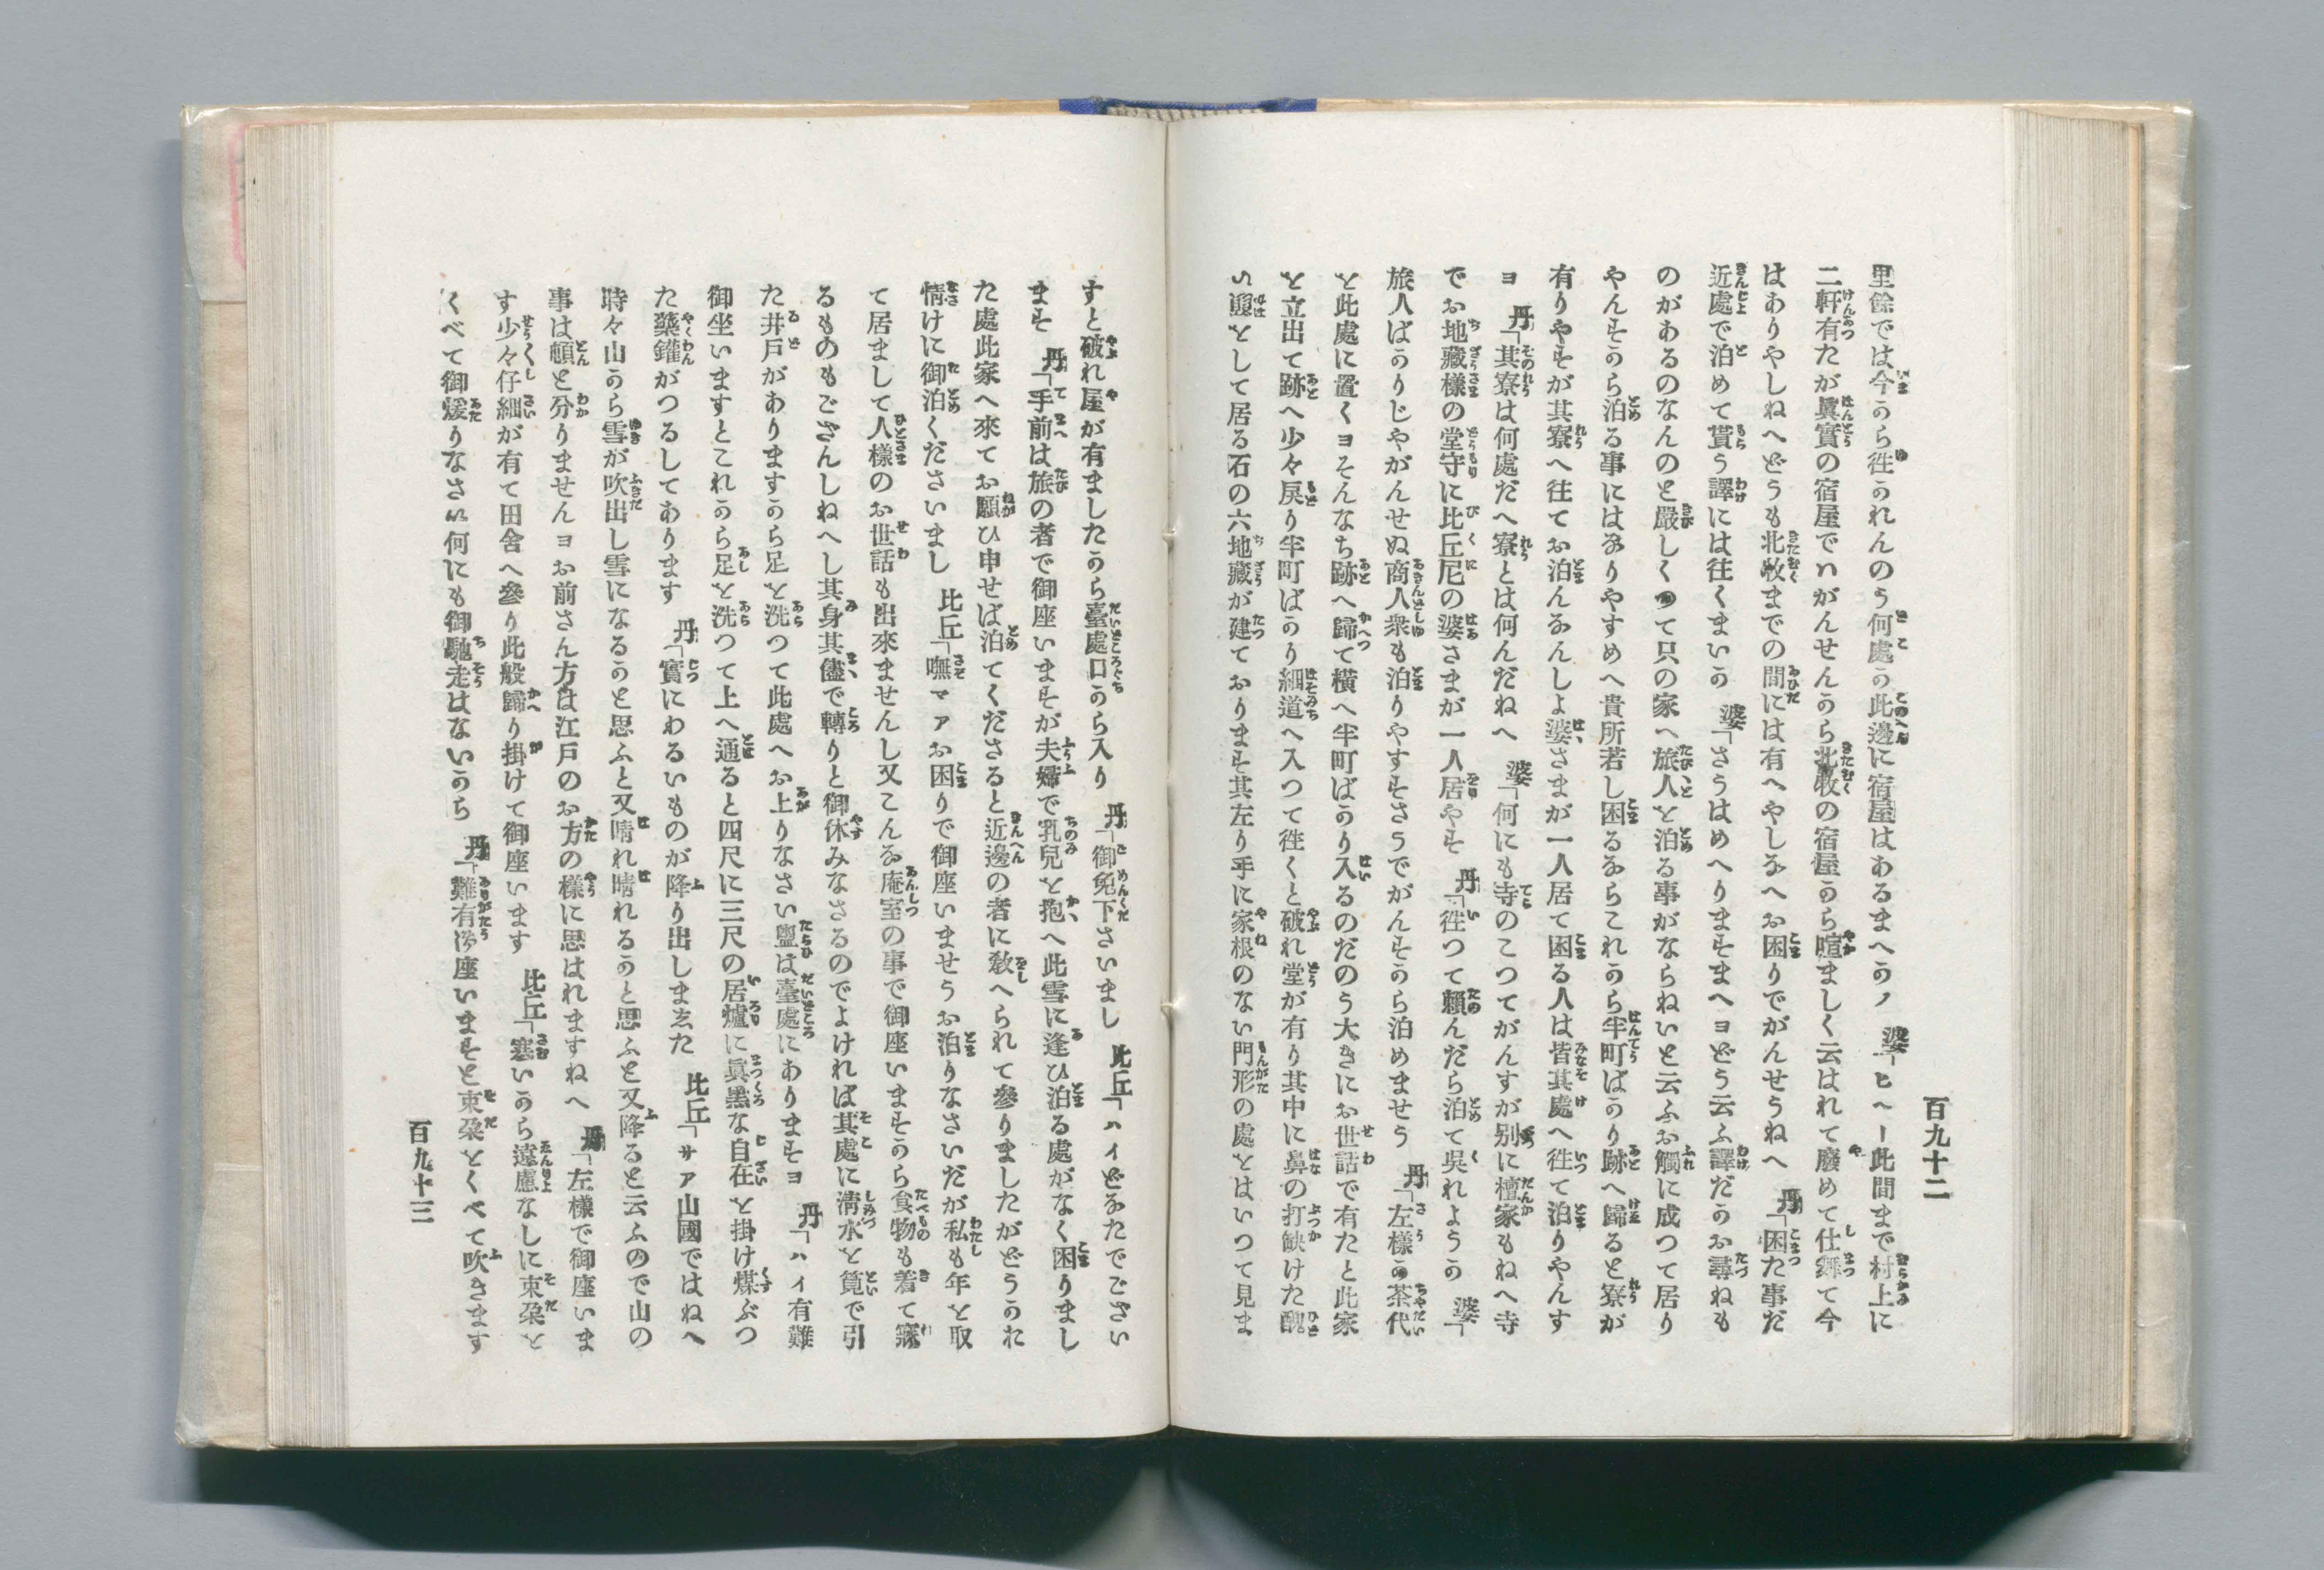 百九十二
里餘では今から徃かれんのう何處か此邊に宿屋はあるまへかノ　婆「ヒヘー此間まで村上に
二軒有たが眞實の宿屋でハがんせんから北牧の宿屋から喧ましく云はれて廢めて仕舞て今
はありやしねへどうも北牧までの間には有へやしねへお困りでがんせうねへ　丹「困た事だ
近處で泊めて貰う譯には往くまいか　婆「さうはめへりませまへヨどう云ふ譯だかお尋ねも
のがあるのなんのと嚴しくつて只の家へ旅人を泊る事がならねいと云ふお觸に成つて居り
やんすから泊る事にはなりやすめへ貴所若し困るならこれから半町ばかり跡へ歸ると寮が
有りやすが其寮へ往てお泊んなんしよ婆さまが一人居て困る人は皆其處へ徃て泊りやんす
ヨ　丹「其寮は何處だへ寮とは何んだねへ　婆「何にも寺のこつてがんすが別に檀家もねへ寺
でお地藏樣の堂守に比丘尼の婆さまが一人居やす　丹「徃つて賴んだら泊て呉れようか　婆「
旅人ばかりじやがんせぬ商人衆も泊りやすすさうでがんすから泊めませう　丹「左樣か茶代
を此處に置くヨそんなち跡へ歸つて横へ半町ばかり入るのだのう大きにお世話で有たと此家
を立出て跡へ少々戻り半町ばかり細道へ入つて徃くと破れ堂が有り其中に鼻の打缺けた醜
い顋をして居る石の六地藏が建ております其左り手に家根のない門形の處をはいつて見ま
すと破れ屋が有ましたから臺處口から入り　丹「御免下さいまし　比丘「ハイどなたでござい
ます　丹「手前は旅の者で御座いますが夫婦で乳兒を抱へ此雪に逢ひ泊る處がなく困りまし
た處此家へ來てお願ひ申せば泊てくださると近邊の者に敎へられて參りましたがどうかれ
情けに御泊くださいまし　比丘「嘸マアお困りで御座いませうお泊りなさいだが私も年を取
て居まして人樣のお世話も出來ませんし又こんな庵室の事で御座いますから食物も着て寐
るものもござんしねへし其身其儘で轉りと御休みなさるのでよければ其處に淸水を筧で引
た井戸がありますから足を洗つて此處へお上りなさい盥は臺處にありますヨ　丹「ハイ有難
御坐いますとこれから足を洗つて上へ通ると四尺に三尺の居爐に眞黒な自在を掛け煤ぶつ
た藥鑵がつるしてあります　丹「實にわるいものが降り出しました　比丘「サア山國ではねへ
時々山から雪が吹出し雪になるかと思ふと又晴れ晴れるかと思ふと又降ると云ふので山の
事は頓と分りませんヨお前さん方は江戸のお方の樣に思はれますねへ　丹「左樣で御座いま
す少々仔細が有て田舍へ參り此般歸り掛けて御座います　比丘「寒いから遠慮なしに束朶を
くべて御煖りなさい何にも御馳走はないのち　丹「難有御座いますと束朶をくべて吹きます
百九十三